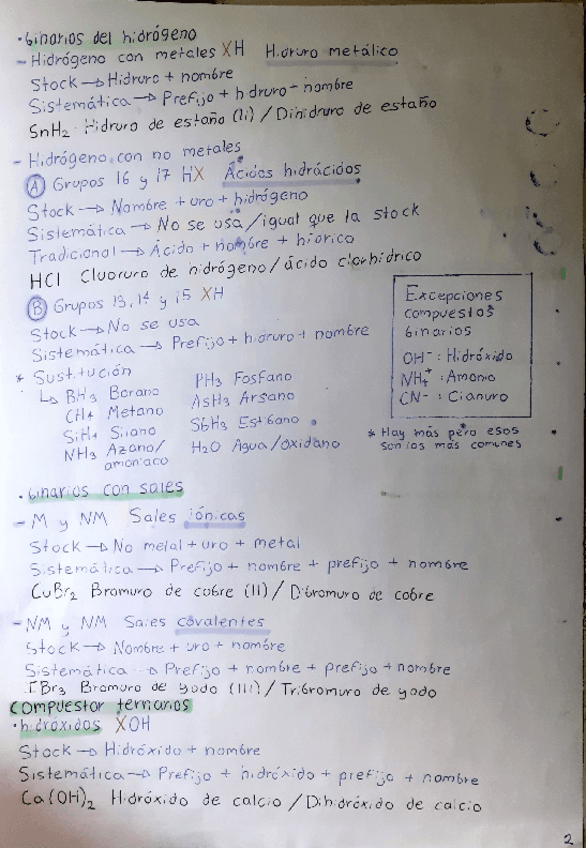 ·binarios del hidrógeno
- Hidrógeno con metales XH Hidruro metálico
Stock → Hidruro + nombre
Sistemática → Prefijo + hidruro + nombre
SnH2 Hidruro de estaño (II) / Dihidruro de estaño
- Hidrógeno con no metales
A Grupos 16 y 17 HX Ácidos hidrácidos
Stock → Nombre + uro + hidrógeno
Sistemática → No se usa / igual que la stock
Tradicional → Ácido + nombre + hídrico
HCl Cluoruro de hidrógeno / ácido clorhídrico
B Grupos 13, 14 y 15 XH
Stock → No se usa
Sistemática → Prefijo + hidruro + nombre
* Sustitución
↳ BH3 Borano
CH4 Metano
SiH4 Silano
NH3 Azano/
amoniaco
PH3 Fosfano
AsH3 Arsano
SbH3 Estibano
H2O Agua/oxidano
Excepciones
compuestos
binarios
OH⁻: Hidróxido
NH4⁺: Amonio
CN⁻: Cianuro
* Hay más pero esos
son los más comunes
·binarios con sales
- M y NM Sales iónicas
Stock → No metal + uro + metal
Sistemática → Prefijo + nombre + prefijo + nombre
CuBr2 Bromuro de cobre (II) / Dibromuro de cobre
- NM y NM Sales covalentes
Stock → Nombre + uro + nombre
Sistemática → Prefijo + nombre + prefijo + nombre
IBr3 Bromuro de yodo (III) / Tribromuro de yodo
Compuestor ternarios
·hidróxidos XOH
Stock → Hidróxido + nombre
Sistemática → Prefijo + hidróxido + prefijo + nombre
Ca(OH)2 Hidróxido de calcio / Dihidróxido de calcio
2